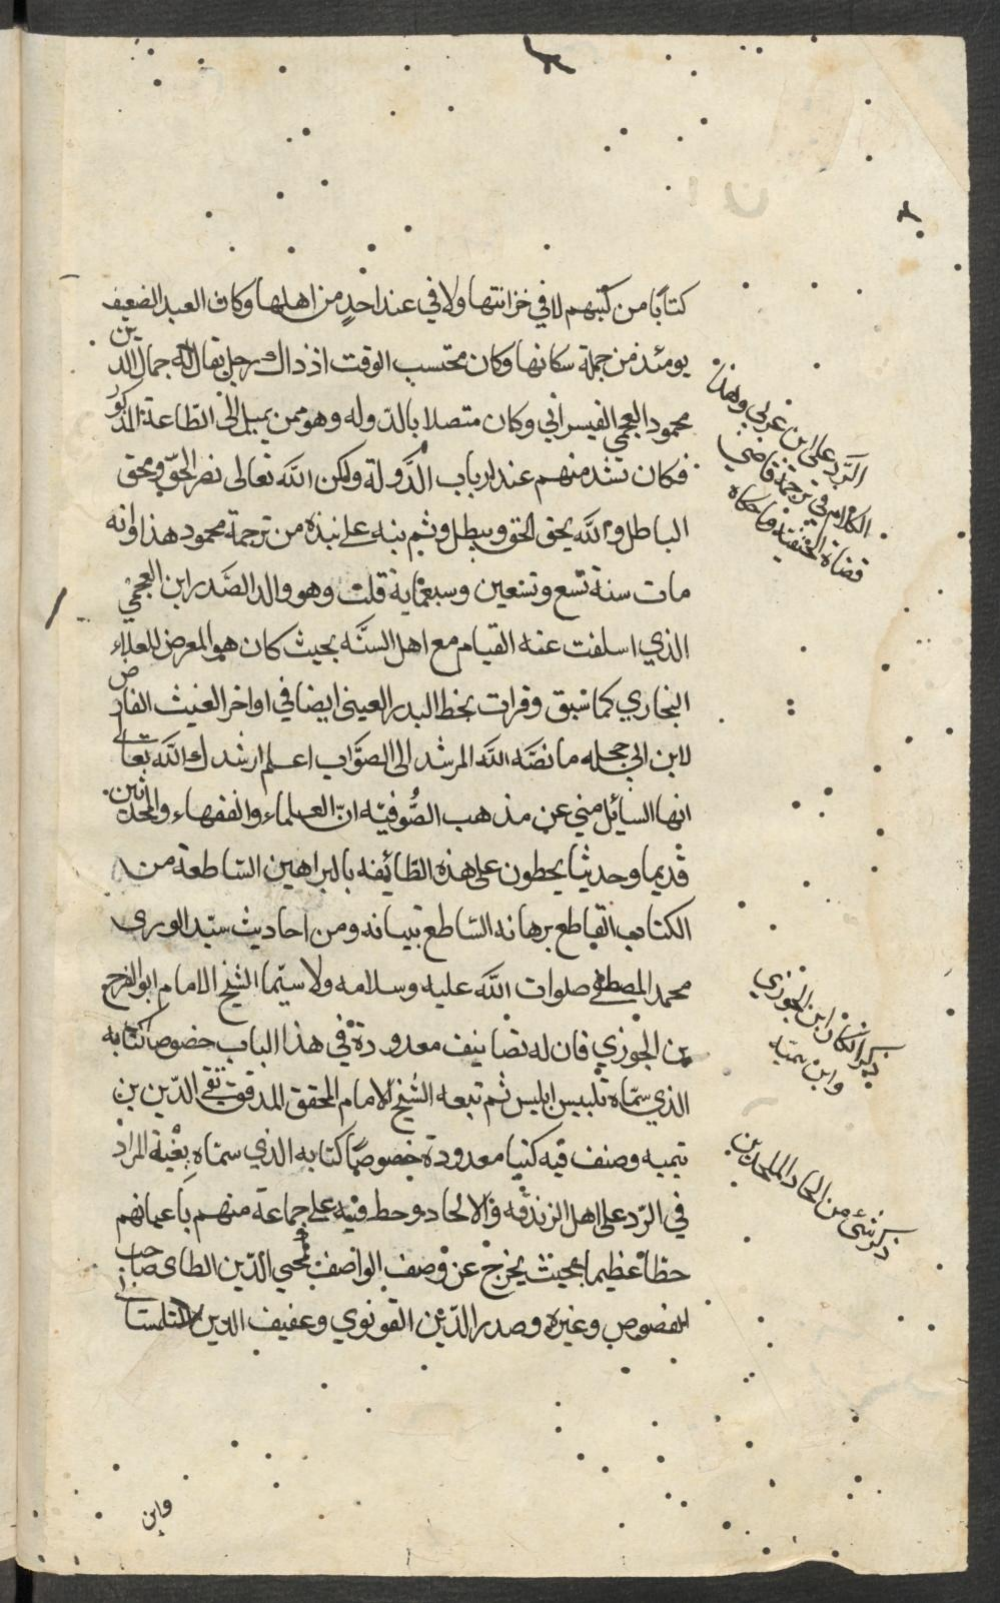 كتابا من كتبهم لا في خزانتها ولا في عند احدٍ من اهلها وكان العبد الضعيف
يومئذ من جملة سكانها وكان محتسب الوقت اذ ذاك رجل يقال له جمال الدين
محمود العجمي القيسراني وكان متصلا بالدوله وهو ممن يميل الى الطاعة المذكور
فكان تشد منهم عند ارباب الدَّولة ولكن اللَّه تعالى نصر الحقّ ومحق
الباطل واللَّه يحق الحق ويبطل وثم نبه على نبذه من ترجمة محمود هذا وانه
مات سنة تسع وتسعين وسبعماية قلت وهو والد الصَّدر ابن العجمي
الذي اسلفت عنه القيام مع اهل السنَّه بحيث كان هو المعرض للعلاء
البخاري كما سبق وقرات بخط البدر العيني ايضا في اواخر الغيث الفارض
لابن ابي حجله ما نصَّه اللَّه المرشد الى الصوَّاب اعلم ارشدك اللَّه تعالى
ايها السايل مني عن مذهب الصُّوفيّه انّ العلماء والفقهاء والمحدثين
قديما وحديثا يحطون على هذه الطّائفه بالبراهين السّاطعة من
الكتاب القاطع برهانه السّاطع تبيانه ومن احاديث سيّد الورى
محمد المصطفى صلوات اللَّه عليه وسلامه ولا سيّما الشيخ الامام ابو الفرج
بن الجوزي فان له تصانيف معدودة في هذا الباب خصوصا كتابه
الذي سمّاه تلبيس ابليس ثم تبعه الشيخ الامام المحقق المدقق تقي الدّين بن
تيميه وصنف فيه كتبا معدودة خصوصًا كتابه الذي سمّاه بغْية المراد
في الرّد على اهل الزندقه والالحاد وحط فيْه على جماعة منهم باعيانهم
حطاً عظيما بحيث يخرج عن وصف الواصف كمحيي الدّين الطاى صاحب
الفصوص وغيره وصدر الدّين القونوي وعفيف الدين التلمسانى
وابن
الرّد على ابن عربي وهذا
الكلام في ترجمة قاضي
قضاة الحنفيّه وما حكاه
ذكر انكار ابن الجوزي
وابن تيميّه
ذكر شيء من الحاد الملحدين